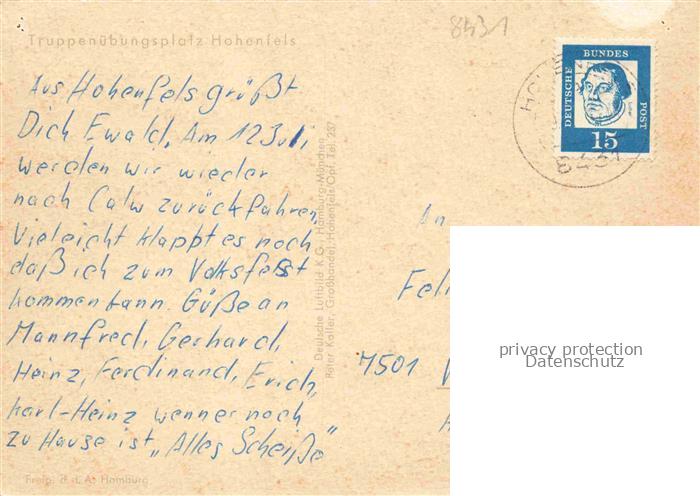 8431
Truppenübungsplatz Hohenfels
Aus Hohenfels grüßt
Dich Ewald, Am 12 Juli
werden wir wieder
nach Calw zurückfahren,
Vieleicht klappt es noch
daß ich zum Volksfesst
kommen kann. Güße an
Mannfred, Gerhard,
Heinz, Ferdinand, Erich,
Karl-Heinz wenner noch
zu Hause ist „Alles Scheiße"
Freig. d. d. A. Hamburg
Deutsche Luftbild K.G., Hamburg-München
Peter Koller, Großhandel, Hohenfels/Opf. Tel. 237
DEUTSCHE
BUNDES
POST
15
8431
An
Feli
7501
privacy protection
Datenschutz